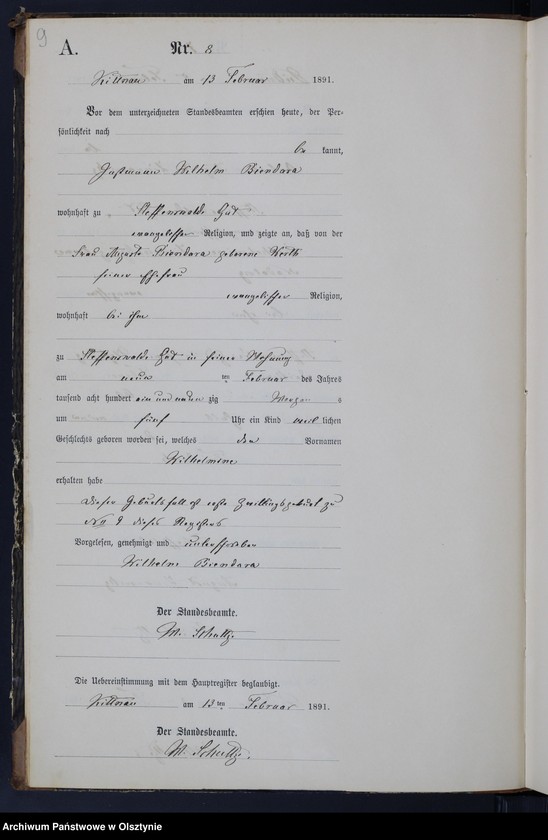 9
A.
Nr. 8
Kittnau am 13 Februar 1891.
Vor dem unterzeichneten Standesbeamten erschien heute, der Per-
sönlichkeit nach
be kannt,
Wilhelm Biendara
wohnhaft zu Steffenswalde Gut
evangelischer Religion, und zeigte an, daß von der
Frau Auguste Biendara geborene
seiner Ehefrau
evangelischer Religion,
wohnhaft bei ihm
zu Steffenswalde Gut in seiner Wohnung
am neun ten Februar des Jahres
tausend acht hundert ein und neun zig Morgen s
um fünf Uhr ein Kind weib lichen
Geschlechts geboren worden sei, welches den Vornamen
Wilhelmine
erhalten habe
Dieser Geburtsfall ist erste Zwillingsgeburt zu
No 9 dieses Registers
Vorgelesen, genehmigt und unterschrieben
Wilhelm Biendara
Der Standesbeamte.
W. Schultz
Die Uebereinstimmung mit dem Hauptregister beglaubigt.
Kittnau am 13 ten Februar 1891.
Der Standesbeamte.
W. Schultz.
Archiwum Państwowe w Olsztynie